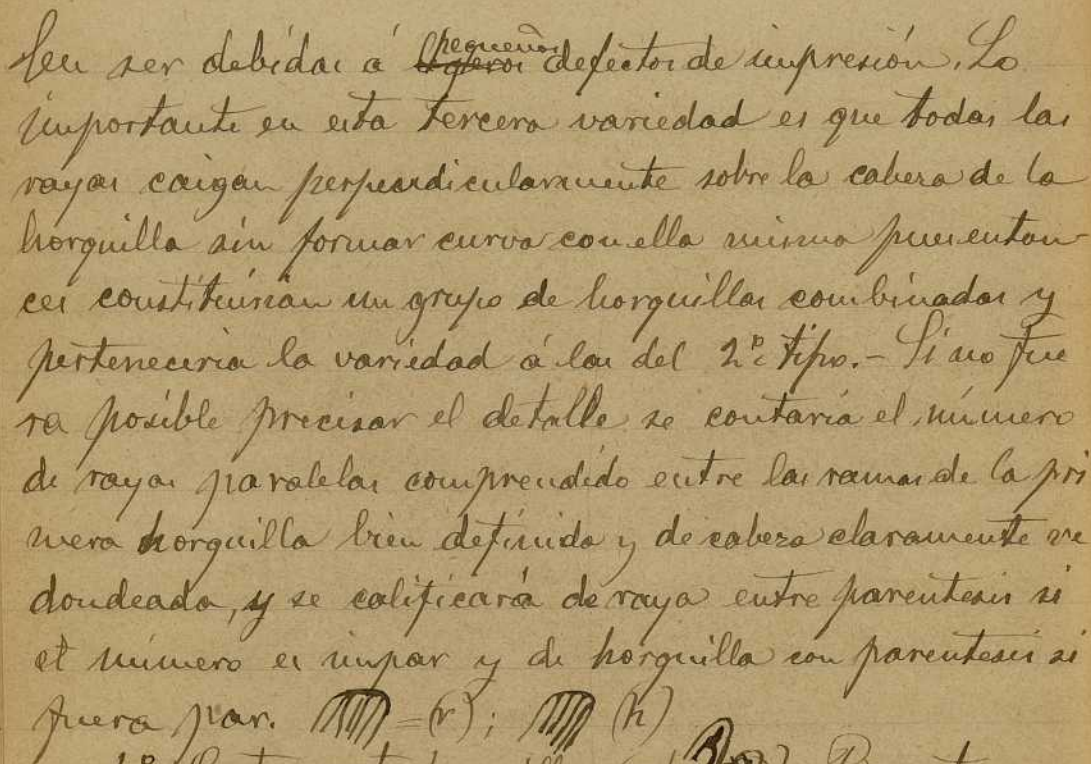 len ser debidas á pequeños defectos de impresión. Lo
importante en esta tercera variedad es que todas las
rayas caigan perpendicularmente sobre la cabeza de la
horquilla sin formar curva con ella misma pues enton-
ces constituirían un grupo de horquillas combinadas y
pertenecería la variedad á las del 2º tipo.- Si no fue
ra posible precisar el detalle se contaría el número
de rayas paralelas comprendido entre las ramas de la pri
mera horquilla bien definida y de cabeza claramente re
dondeada, y se calificará de raya entre parentesis si
el número es impar y de horquilla con parentesis si
fuera par. = (r); (h)